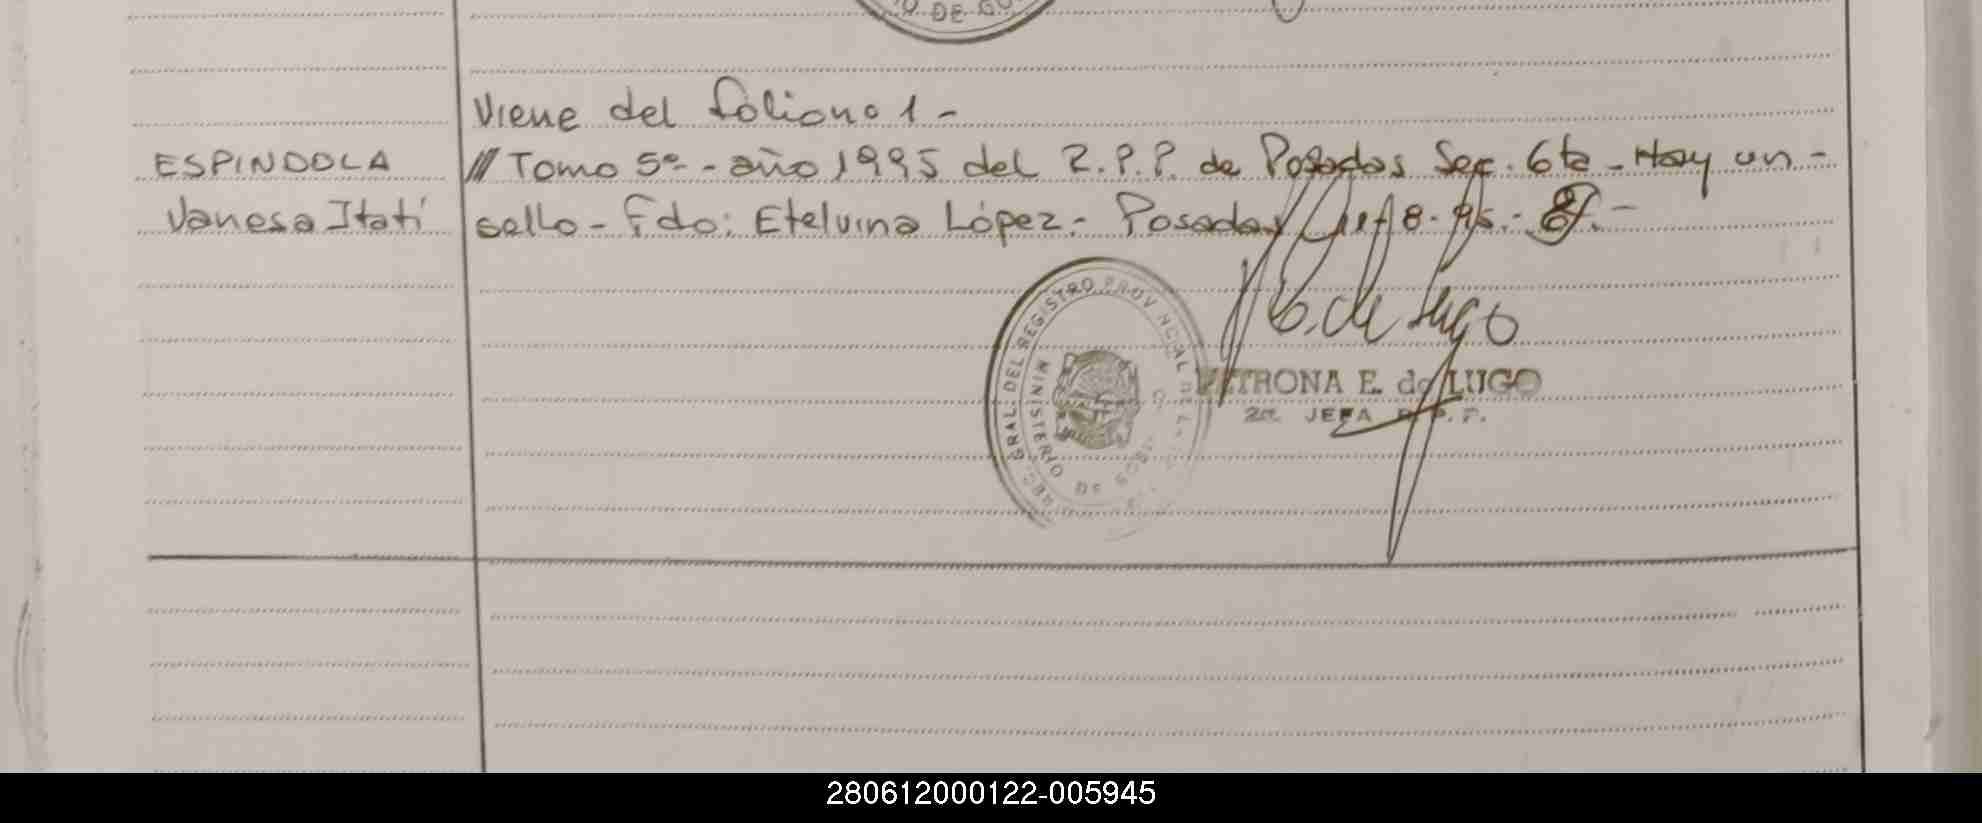 Viene del folio no 1 -
ESPINDOLA
Vanesa Itatí
/// Tomo 5º - año 1995 del R.P.P. de Posadas Sec. 6ta - Hay un -
sello - Fdo: Etelvina López - Posadas 8-95.-
E. de Lugo
PETRONA E. de LUGO
2a. JEFA R.P.P.
GRAL. DEL REGISTRO PROVINCIAL DE
MINISTERIO DE GOB.
280612000122-005945